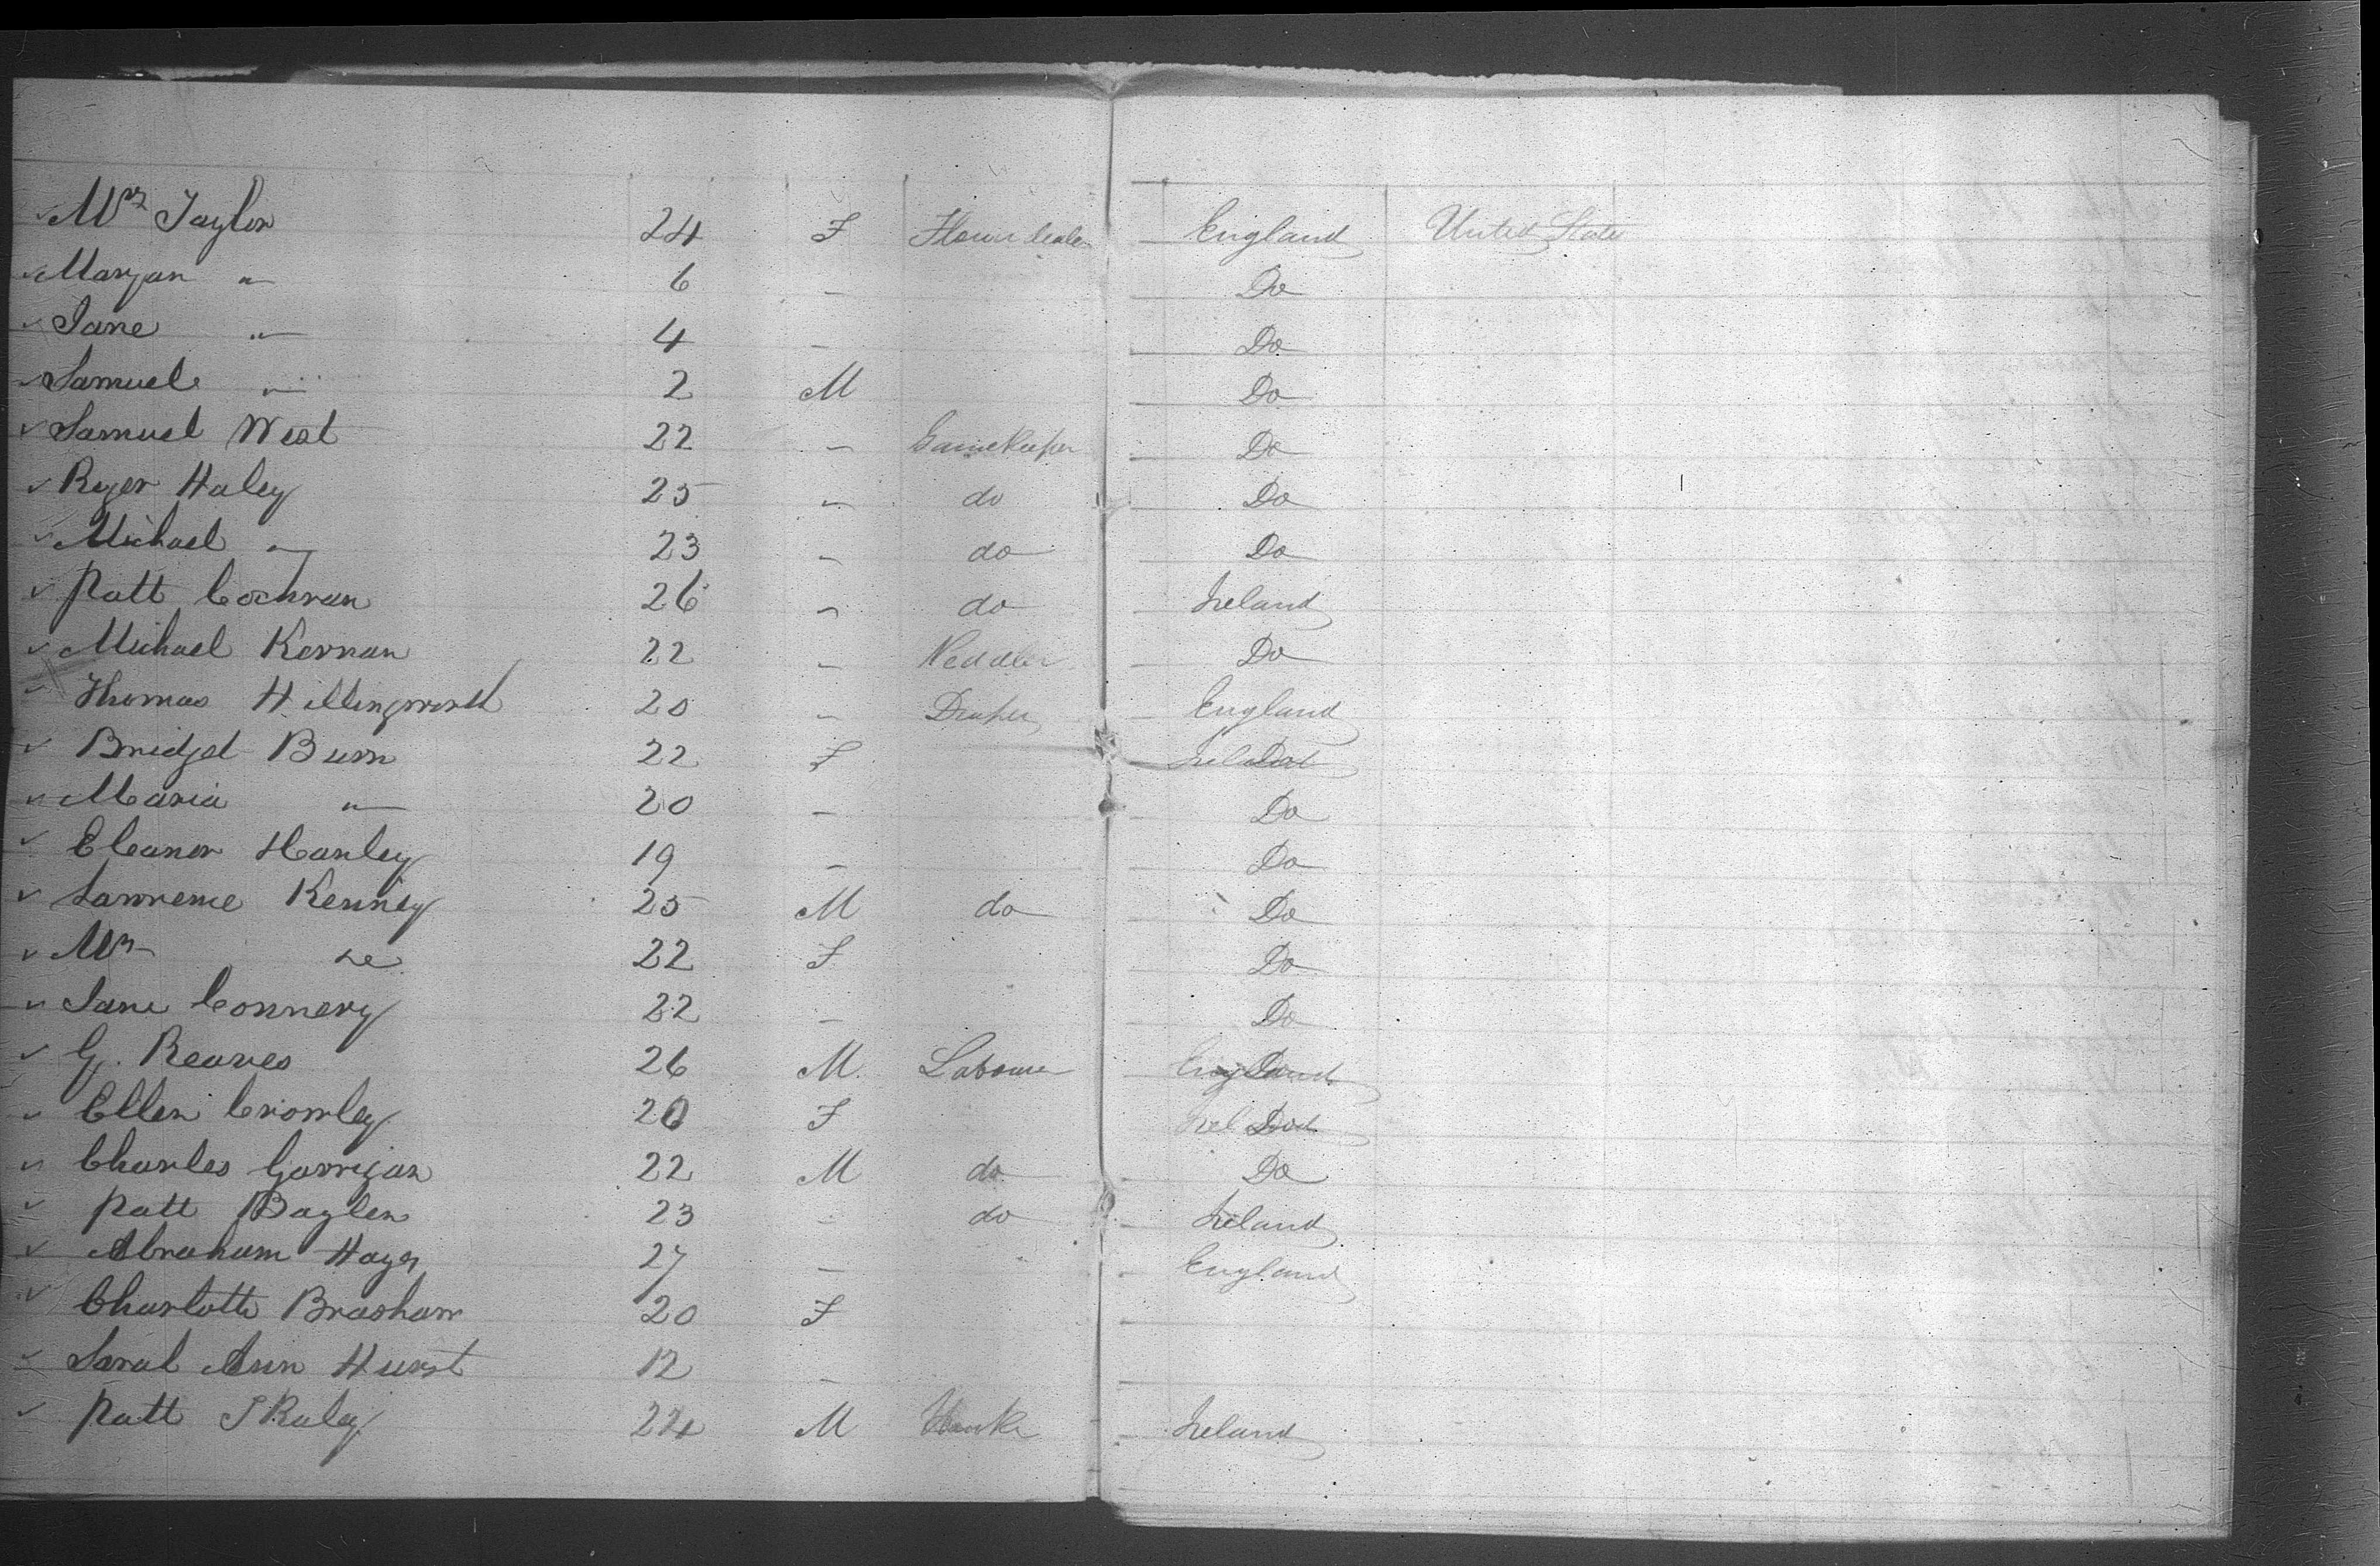 Mrs Taylor 24 F Flour dealer England United States
Maryan " 6 – Do
Jane " 4 – Do
Samuel " 2 M Do
Samuel West 22 – Gamekeeper Do
Roger Haley 25 – do Do
Michael " 23 – do Do
Patt Cochran 26 – do Ireland
Michael Kernan 22 – Peddler Do
Thomas Hillingworth 20 – Draper England
Bridget Burn 22 F Ireland
Maria " 20 – Do
Eleanor Hanley 19 – Do
Lawrence Kenney 25 M do Do
Mrs 22 F Do
Jane Connery 22 – Do
G. Reaves 26 M Labourer England
Ellen Cromley 20 F Ireland
Charles Garrigan 22 M do Do
Patt Baylen 23 – do Ireland
Abraham Hayes 27 – England
Charlotte Brashaw 20 F
Sarah Ann Hurst 12 –
Patt 24 M Ireland